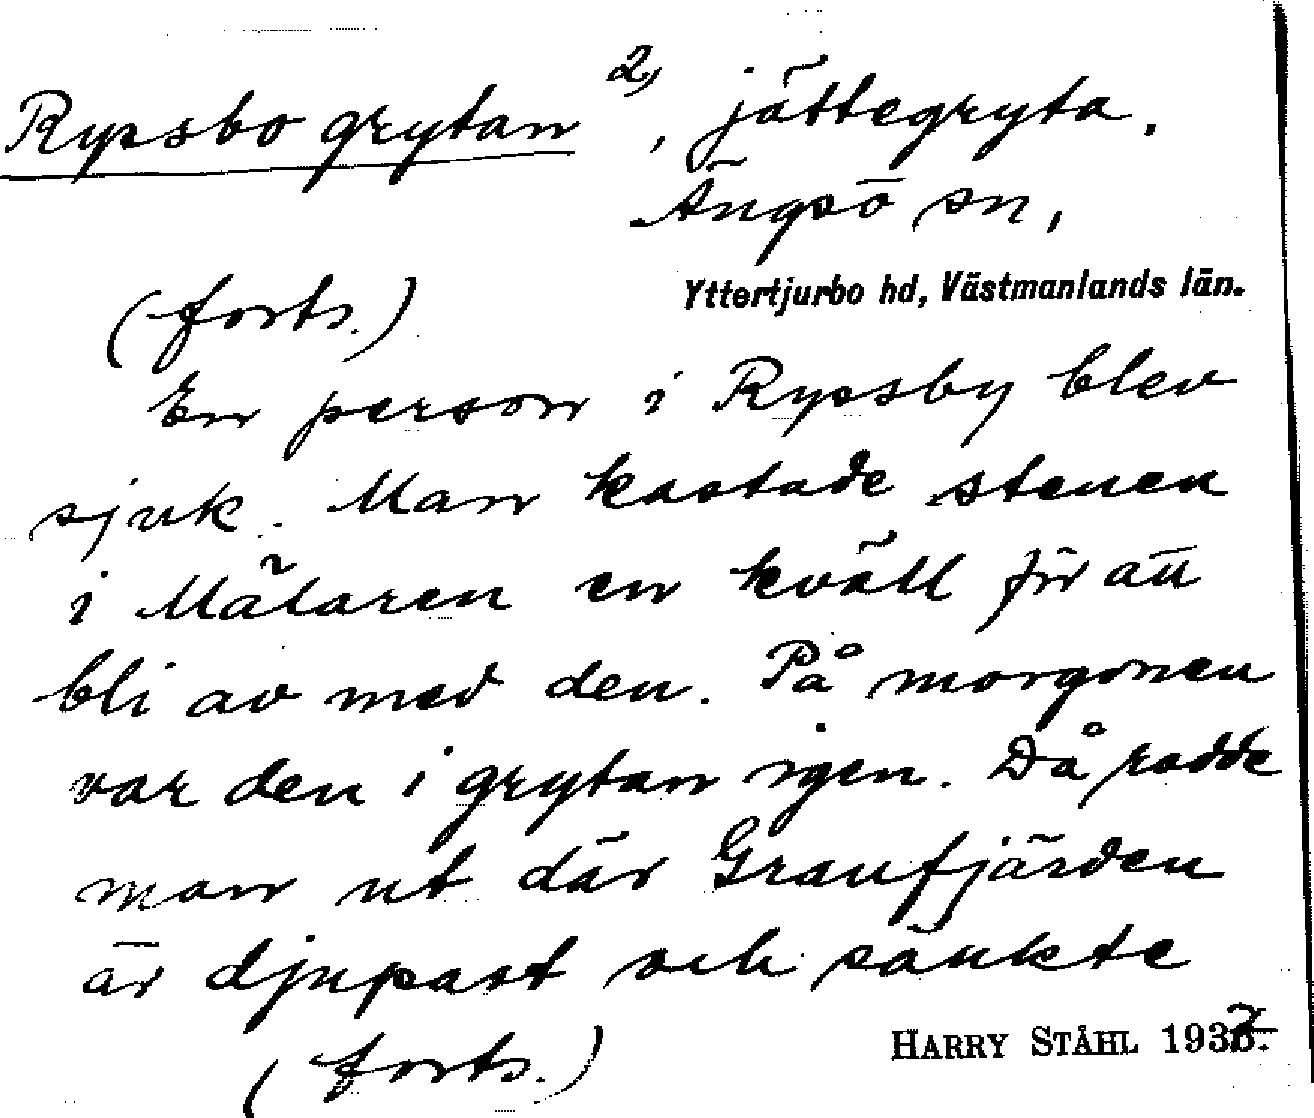 Rypsbo grytan 2), jättegryta.
Ängsö sn,
Yttertjurbo hd, Västmanlands län.
(forts.)
En person i Rypsby blev
sjuk. Man kastade stenen
i Mälaren en kväll för att
bli av med den. På morgonen
var den i grytan igen. Då rodde
man ut där Granfjärden
är djupast och sänkte
(forts.)
HARRY STÅHL 1937.